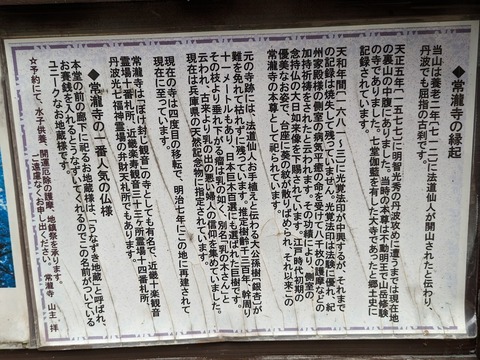 ◆常瀧寺の縁起
当山は養老二年(七一八)に法道仙人が開山されたと伝わり、
丹波でも屈指の古刹です。
天正五年(一五七七)に明智光秀の丹波攻めに遭うまでは現在地
の裏山の中腹にありました。当時の本尊は不動明王で山岳修験
の寺でありました。七堂伽藍を有した大寺であったと郷土史に
記録されています。
天和年間(一六八一～三)に光覚法印が中興するが、それまで
の記録は焼失して残っていません。光覚法印は法験に優れ、紀
州家殿様の側室の病気平癒の命を受けて八千枚の護摩などの
加持祈祷をされたと伝わります。その功績により、側室の
念持仏の大日如来像を下賜されています。江戸時代初期の
優美なお姿で、台座に葵の紋が散りばめられ、それ以来この
常瀧寺の本尊として祀られています。
元の寺跡には、法道仙人お手植えと伝わる大公孫樹(銀杏)が
難を免れて枯れずに残っています。推定樹齢千三百年、幹周り
十一メートルもあり、日本百木百選にも選ばれた巨樹です。
その枝より垂れ下がる瘤は乳の如く、別名「乳の木」さんと
云われ、古来より乳の出の悪い婦人の信仰を集めていました。
現在は兵庫県の天然記念物に指定されています。
現在の寺は四度目の移転で、明治七年にこの地に再建されて
現在に至っています。
常瀧寺は「ぼけ封じ観音」の寺としても有名で、近畿十楽観音
霊場十番札所、近畿楽寿観音三十三ヶ所霊場二十四番札所、
丹波光七福神霊場の弁財天札所でもあります。
◆常瀧寺の一番人気の仏様
本堂の前の廊下に祀るお地蔵様は、「うなずき地蔵」と呼ばれ、
お賽銭を入れるとうなずいてくれるのでこの名前がついている
ユニークなお地蔵様です。
☆予約にて、水子供養、開運厄除の護摩、地鎮祭を承ります。
ご遠慮なくお申し出ください。 常瀧寺 山主 拝